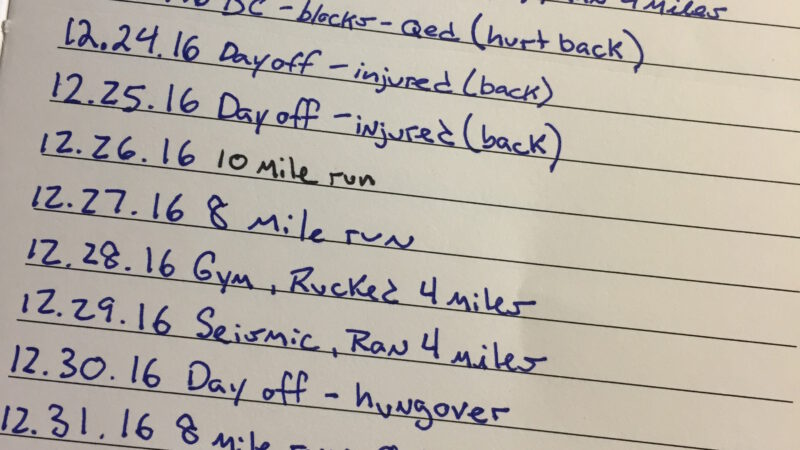 4 Miles
DC - blocks - Qed (hurt back)
12.24.16 Day off - injured (back)
12.25.16 Day off - injured (back)
12.26.16 10 Mile run
12.27.16 8 Mile run
12.28.16 Gym, Rucked 4 miles
12.29.16 Seismic, Ran 4 miles
12.30.16 Day off - hungover
12.31.16 8 mile